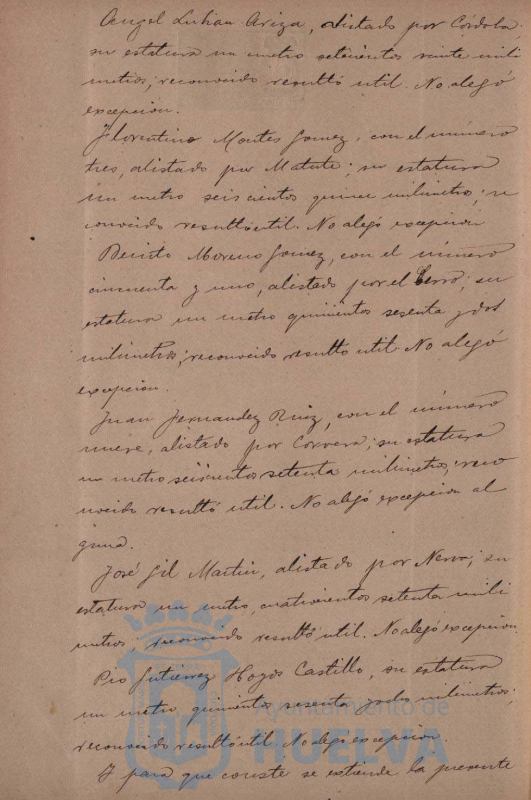 Angel Luhian Ariza, alistado por Córdoba;
su estatura un metro setecientos veinte mili
metros; reconocido resultó util. No alegó
excepcion.
Florentino Montes Gomez, con el número
tres, alistado por Matute; su estatura
un metro seiscientos quince milimetros; re
conocido resultó util. No alegó excepcion
Benito Moreno Gomez, con el número
cincuenta y uno, alistado por el Cerro; su
estatura un metro quinientos sesenta y dos
milimetros; reconocido resultó util. No alegó
excepcion.
Juan Fernandez Ruiz, con el número
nueve, alistado por Corvera; su estatura
un metro seiscientos setenta milimetros; reco
nocido resultó util. No alegó excepcion al
guna.
José Gil Martin, alistado por Nerva; su
estatura un metro, cuatrocientos setenta mili
metros; reconocido resultó util. No alegó excepcion.
Pio Gutiérrez Hoyos Castillo, su estatura
un metro quinientos sesenta y dos milimetros;
Ayuntamiento de
reconocido resultó util. No alegó excepcion.
HUELVA
Y para que conste se extiende la presente